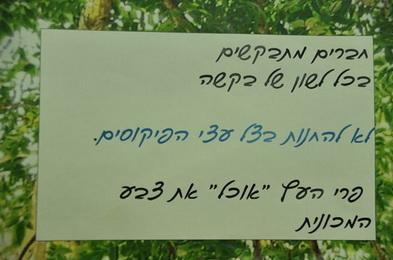 חברים מתבקשים
בכל לשון של בקשה
לא להחנות בצל עצי הפיקוסים.
פרי העץ "אוכל" את צבע
המכונית